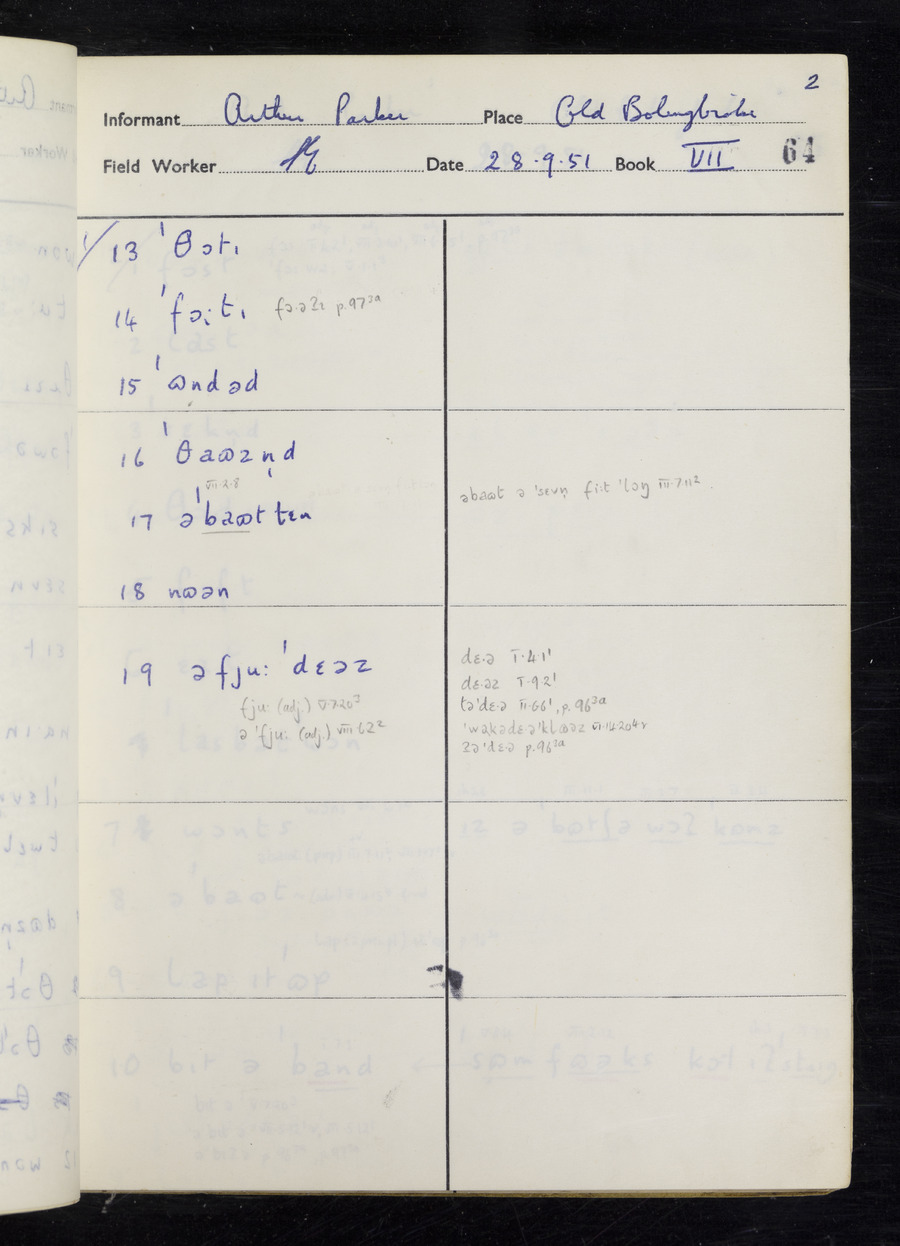 2
Informant Arthur Parker Place Old Bolingbroke
Field Worker Date 28.9.51 Book VII 64
1/ 13 ˈθɔtɪ
14 ˈfɔːtɪ fɔ·əʔɪ p.97³ᵃ
15 ˈɷndəd
16 ˈθaɷzn̩d
VII·2·8
17 əˈbaɷt tɛn
əbaɷt ə ˈsɛvn̩ fiːt ˈlɔŋ III·7·11²
18 nɷən
19 ə fjuː ˈdɛəz
fjuː (adj.) V·7·20³
ə ˈfjuː (adj.) VIII·6·2²
dɛ·ə I·4·1¹
dɛ·əz I·9·2¹
tə ˈdɛ·ə II·6·6¹, p.96³ᵃ
ʔə ˈdɛ·ə p.96³ᵃ